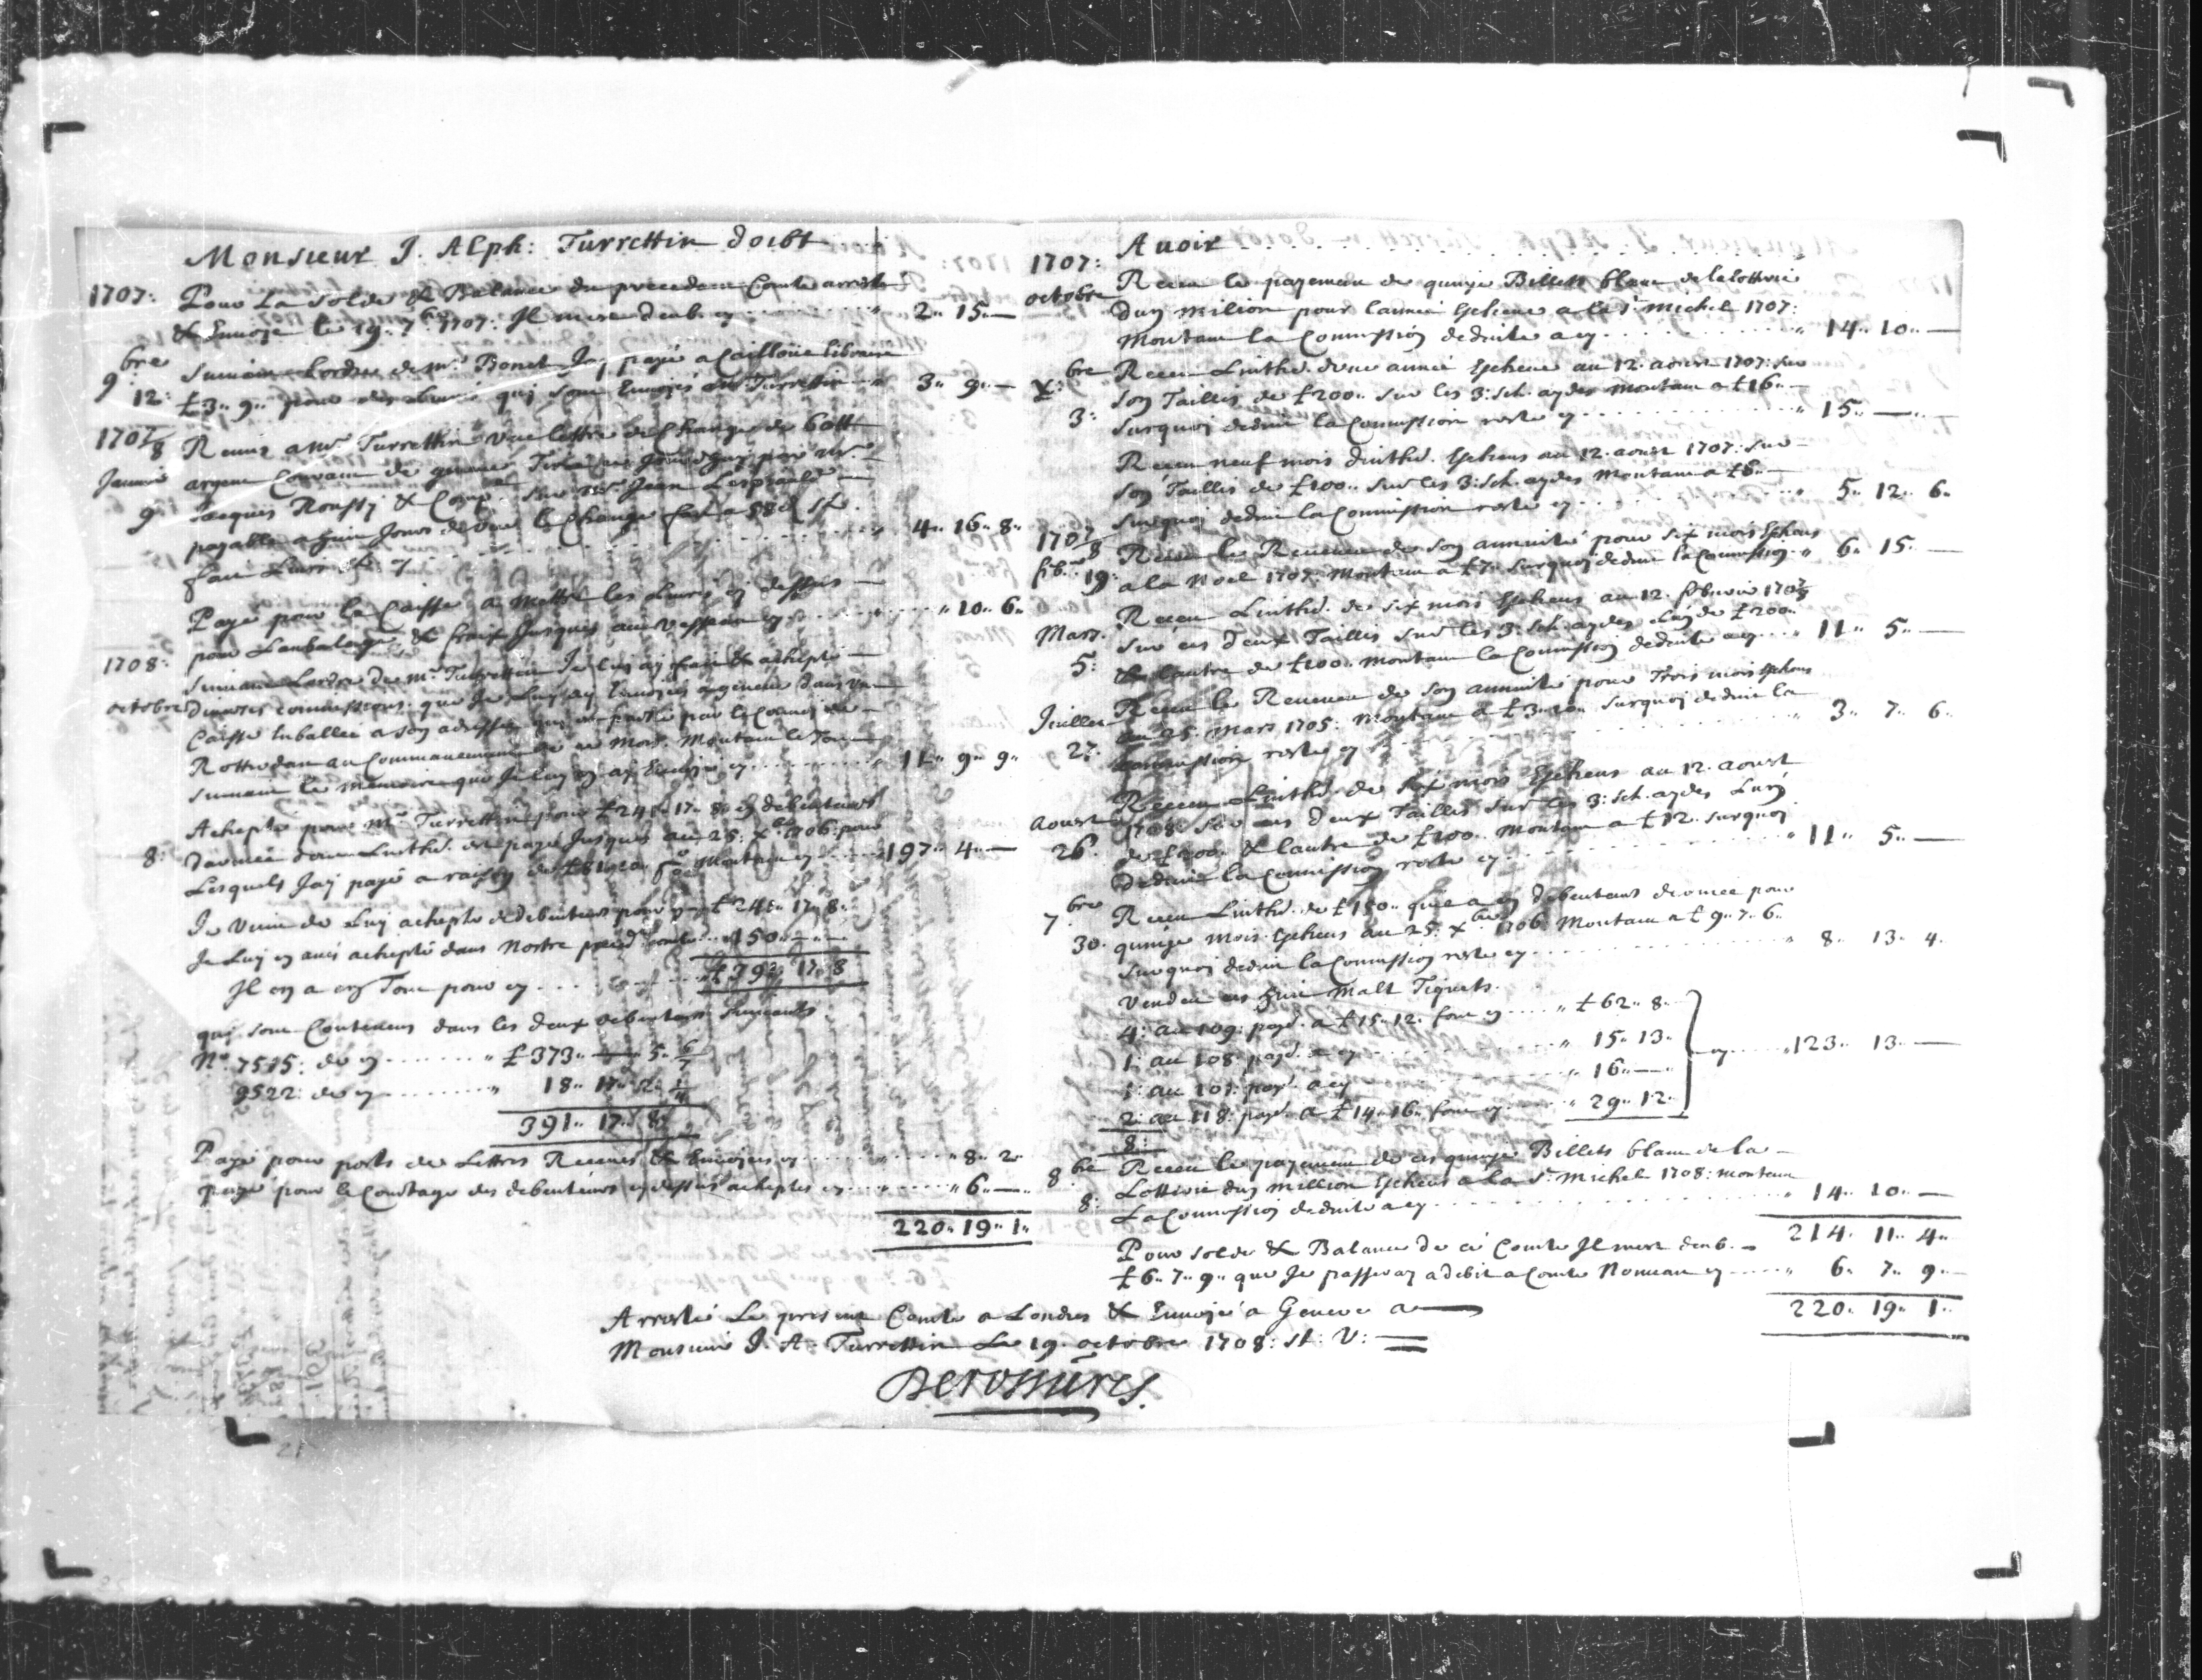 Monsieur J. Alph: Turrettin doibt
1707: Pour La Solde & Balance du precedent Comte arresté
& Envoyé le 19. 7bre 1707: Il m'ere deub. cy " 2" 15" —
9bre 12: Suivant Lordre de mr. Bonet Jay payé a Cailloüe libraire
£ 3" 9" pour des Livres quj sont Envoyés a mr Turrettin " 3" 9" —
1707/8 Remis a mr Turrettin Une lettre de Change de 60 ll
Janvier argent Courant de geneve Tirée par mr.
9 Jacques Roussy & Comp. sur mr Jean
payable a huit Jours de Veüe le Change fait a 58 d St.
fait Livres St. cy " 4" 16" 8"
Payé pour la Caisse a Mettre les Livres cy dessus
pour Lanbalage & fraix Jusques au Vesseau cy " 10" 6"
1708: Suivant Lordre de mr Turrettin Je luy ay fait & achepté
octobre diverses commissions que Je Luy ay Envoyées a geneve dans Une
Caisse Enballée a son adresse qui est partie par le Convoy de
Rotterdam au Commancement de ce Mois. Montant le Tout
suivant le memoire que Je luy en ay Envoyé cy " 11" 9" 9"
Achepté pour mr Turrettin pour £ 241" 17" 8 en debenteurs
8: darmée dont Linthet. est payé Jusques au 25. xbre 1706: pour
Lesquels Jay payé a raison de £ 81" 10 Montant cy 197" 4" —
Je Viens de Luy achepter de debenteurs pour cy £ 241" 17" 8"
Je Luy en avois achepté dans Nostre preced. comte 150" — " —
Il en a en Tout pour cy £ 391" 17" 8
quj sont Contenus dans les deux debenteurs Suivants
No. 7515: de cy " £ 373" — 5"
9522: de cy " 18" 17" 2"
391" 17" 8
Payé pour ports de Lettres Receues & Envoyées cy " 8" 2"
payé pour le Courtage des debenteurs cy dessus acheptés cy " 6" —
220" 19" 1"
Avoir
1707: Receu le payement de quinze Billets blanc de la lotterie
octobre dun milion pour lannée Escheue a la St. Michel 1707:
Montant la Commission deduite a cy " 14" 10" —
xbre Receu Linthet. dune année Escheue au 12. aoust 1707: sur
3: son Taillis de £ 200" sur les 3: sch. aydes Montant a £ 16" —
surquoj deduit la Commission reste cy " 15" — " —
Receu neuf mois dinthet. Escheus au 12. aoust 1707: sur
son Taillis de £ 100" sur les 3: sch. aydes Montant a £ 6" —
surquoj deduit la Commission reste cy " 5" 12" 6"
1707/8 Receu le Revenu de son annuité pour six mois Escheus
feb. 19: a la Noel 1707. Montant a £ 7" surquoj deduit la Commission " 6" 15" —
Mars. Receu Linthet. de six mois Escheus au 12. febvrier 1707/8
5: sur ces deux Taillis sur les 3: sch. aydes Lun de £ 200"
& lautre de £ 100. Montant la Commission deduite a cy " 11" 5" —
Juillet Receu le Revenu de son annuité pour Trois mois Escheus
27. au 25. Mars 1705: Montant a £ 3" 10" surquoj deduit la
Commission reste cy " 3" 7" 6"
Receu Linthet. de six mois Escheus au 12. aoust
aoust 1708 sur ces deux Taillis sur les 3: sch. aydes Lun
26. de £ 200. & lautre de £ 100. Montant a £ 12. surquoj
deduit la Commission reste cy " 11" 5" —
7bre Receu Linthet. de £ 150" quil a en debenteurs darmée pour
30. quinze mois Escheus au 25. xbre 1706: Montant a £ 9" 7" 6"
surquoj deduit la Commission reste cy " 8" 13" 4"
Vendeu ces huit Malt Tiquets.
4: au 109: payd. a £ 15" 12. font cy " £ 62" 8"
1: au 108: payd. a cy " 15" 13" cy "123" 13" —
1: au 107: payd. a cy " 16" —
2: au 118: payd. a £ 14" 16" font cy " 29" 12"
8:
8bre Receu le payement de ces quinze Billets blanc de la
8: Lotterie dun million Escheus a la St. Michel 1708: montant
La Commission deduite a cy " 14" 10" —
214" 11" 4"
Pour solde & Balance de ce Comte Il m'est deub.
£ 6" 7" 9" que Je passeray a debit a Comte Nouveau cy " 6" 7" 9"
220" 19" 1"
Arresté Le present Comte a Londres & Envoyé a Geneve a
Monsieur J. A. Turrettin Le 19. octobre 1708: St: V:
Derossieres